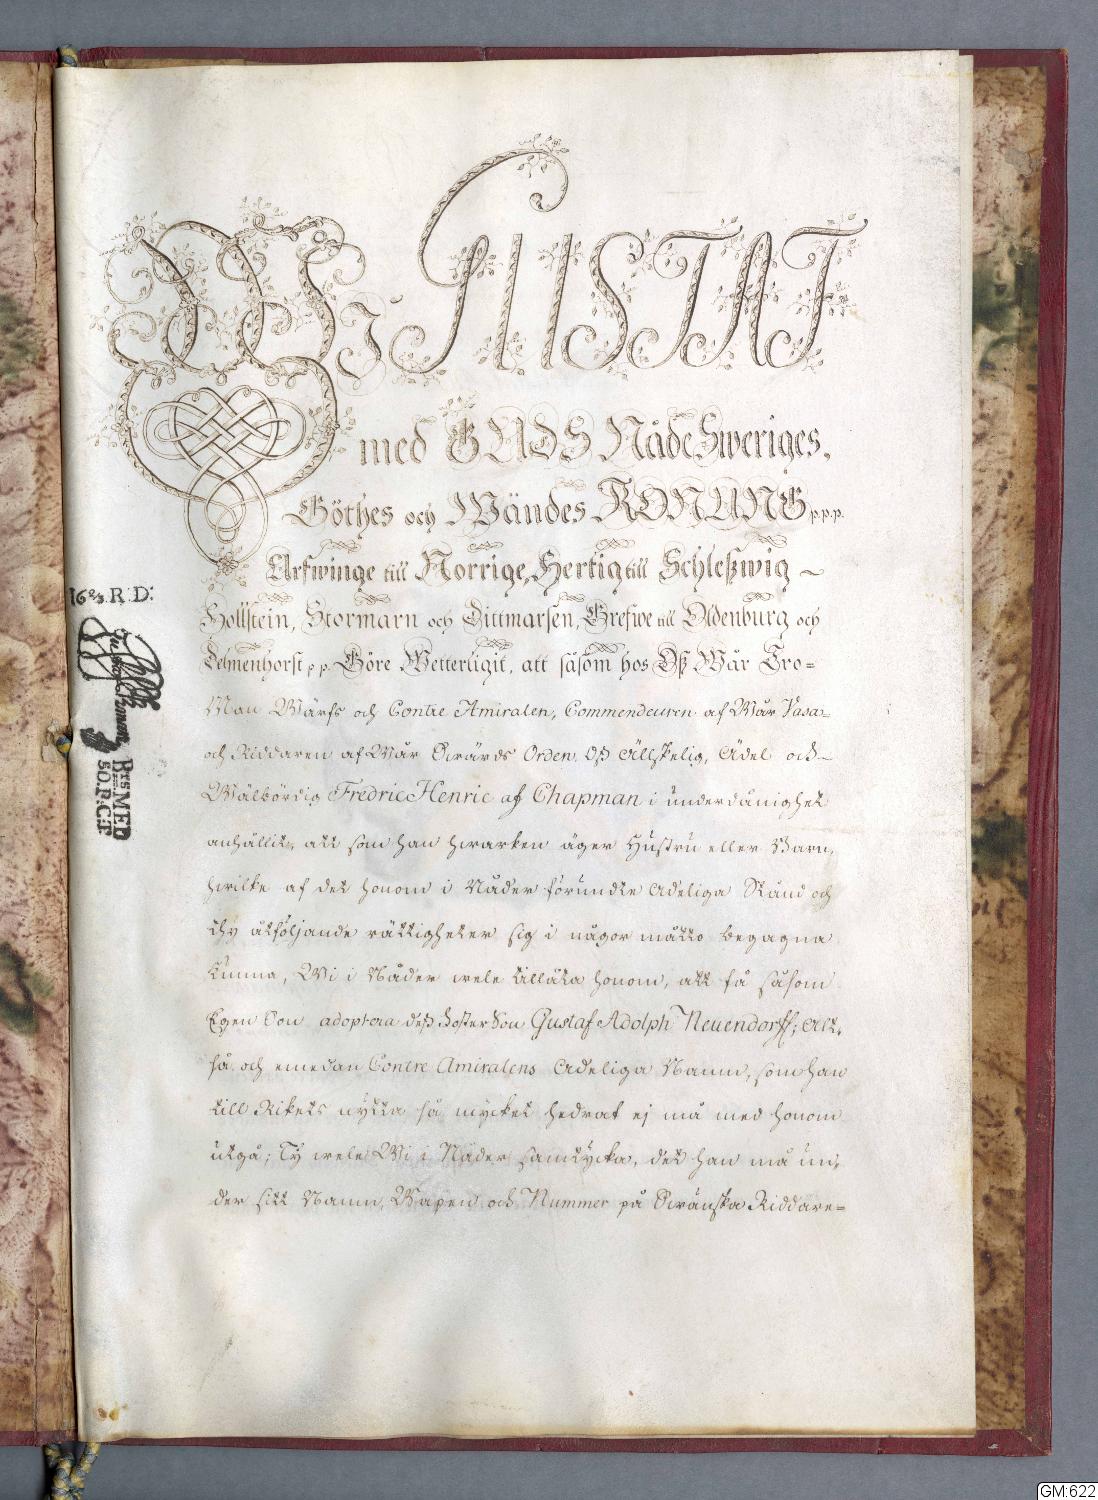 Wi GUSTAF
med GUDS Nåde Sweriges,
Göthes och Wändes KONUNG p.p.p.
Arfwinge till Norrige, Hertig till Schleßwig
Hollstein, Stormarn och Dittmarsen, Grefwe till Oldenburg och
Delmenhorst p p. Göre Wetterligit, att såsom hos Oß Wår Tro=
Man Warfs och Contre Amiralen, Commendeuren af Wår Vasa=
och Riddaren af Wår Swärds Orden, Oß Älskelig, Ädel och
Wälbördig Fredric Henric af Chapman i underdånighet
anhållit, att som han hwarken äger Hustru eller Barn,
hwilke af det honom i Nåder förundte Adeliga Stånd och
thy åtföljande rättigheter sig i någor måtto begagna
kunna, Wi i Nåder wele tillåta honom, att få såsom
Egen Son adoptera deß Syster Son Gustaf Adolph Neuendorff; Alt,
så och emedan Contre Amiralens Adeliga Namn, som han
till Rikets nytta så mycket hedrat ej må med honom
utgå; Ty wele Wi i Nåder samtycka, det han må un,
der sitt Namn, Wapen och Nummer på Swänska Riddare=
16 2/3 R:D:
Brs MED
50. P:C:T
GM:622